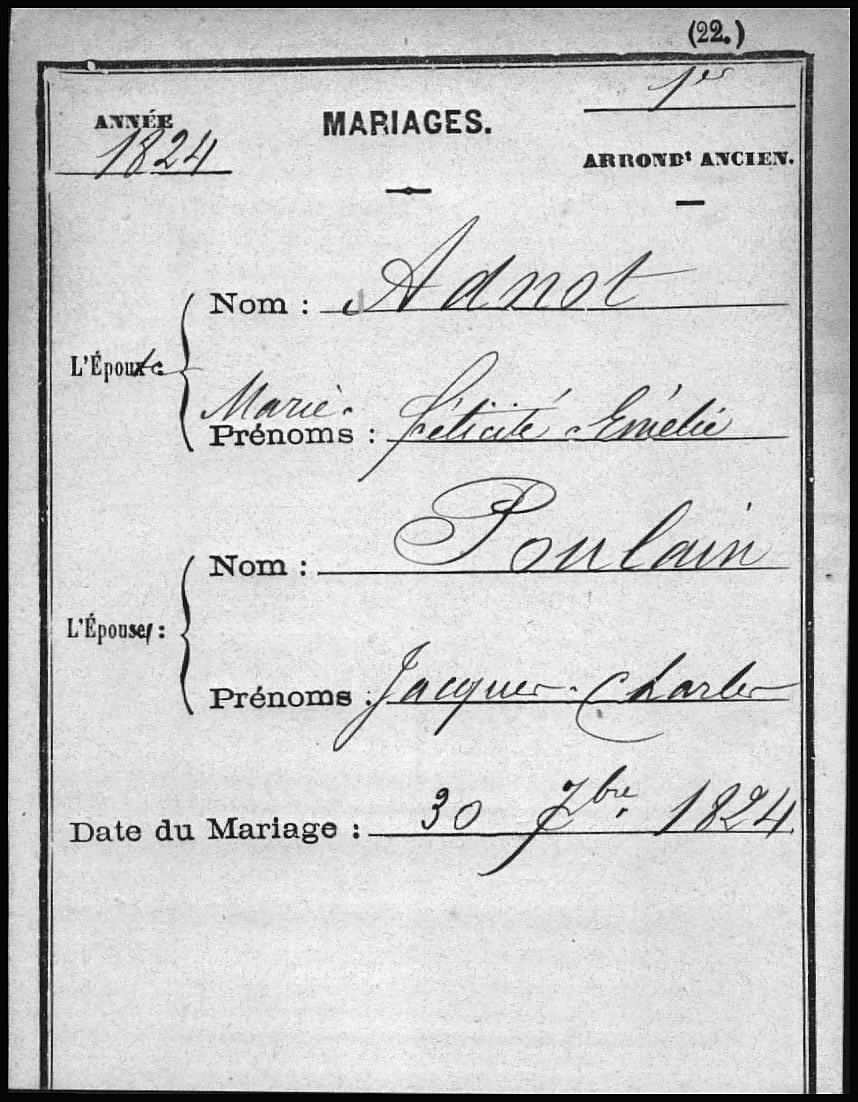 (22.)
ANNÉE
1824
MARIAGES.
1er
ARRONDt ANCIEN.
Nom : Adnot
L'Épouse
Marie
Prénoms : Félicité Emélie
Nom : Poulain
L'Époux :
Prénoms : Jacques Charles
Date du Mariage : 30 7bre 1824